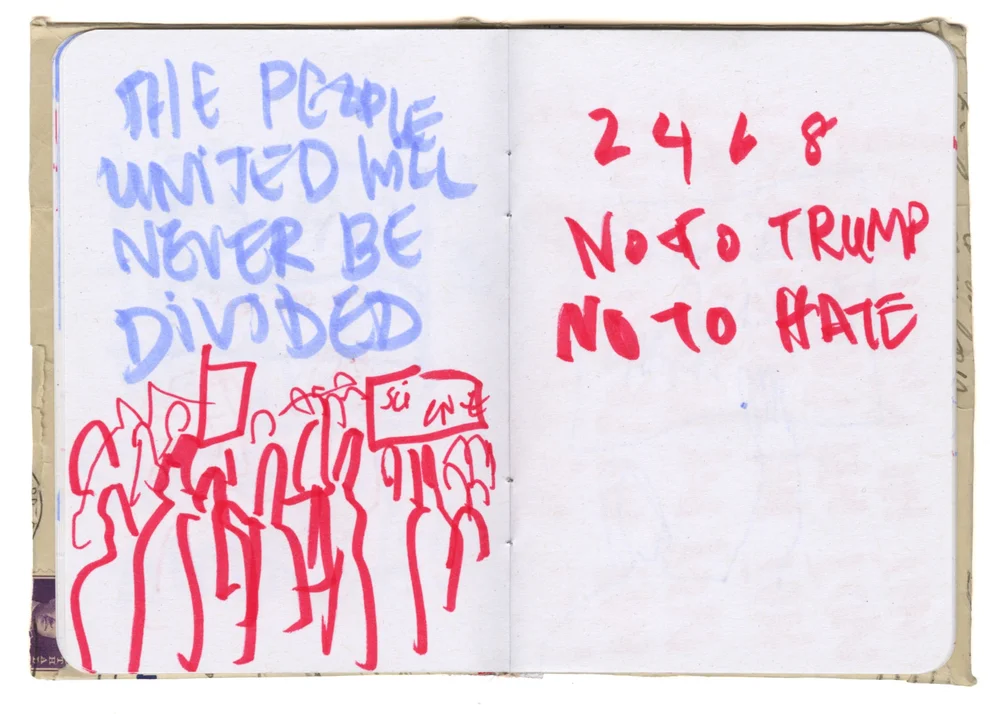 THE PEOPLE
UNITED WILL
NEVER BE
DIVIDED
SCIENCE
2 4 6 8
NO TO TRUMP
NO TO HATE